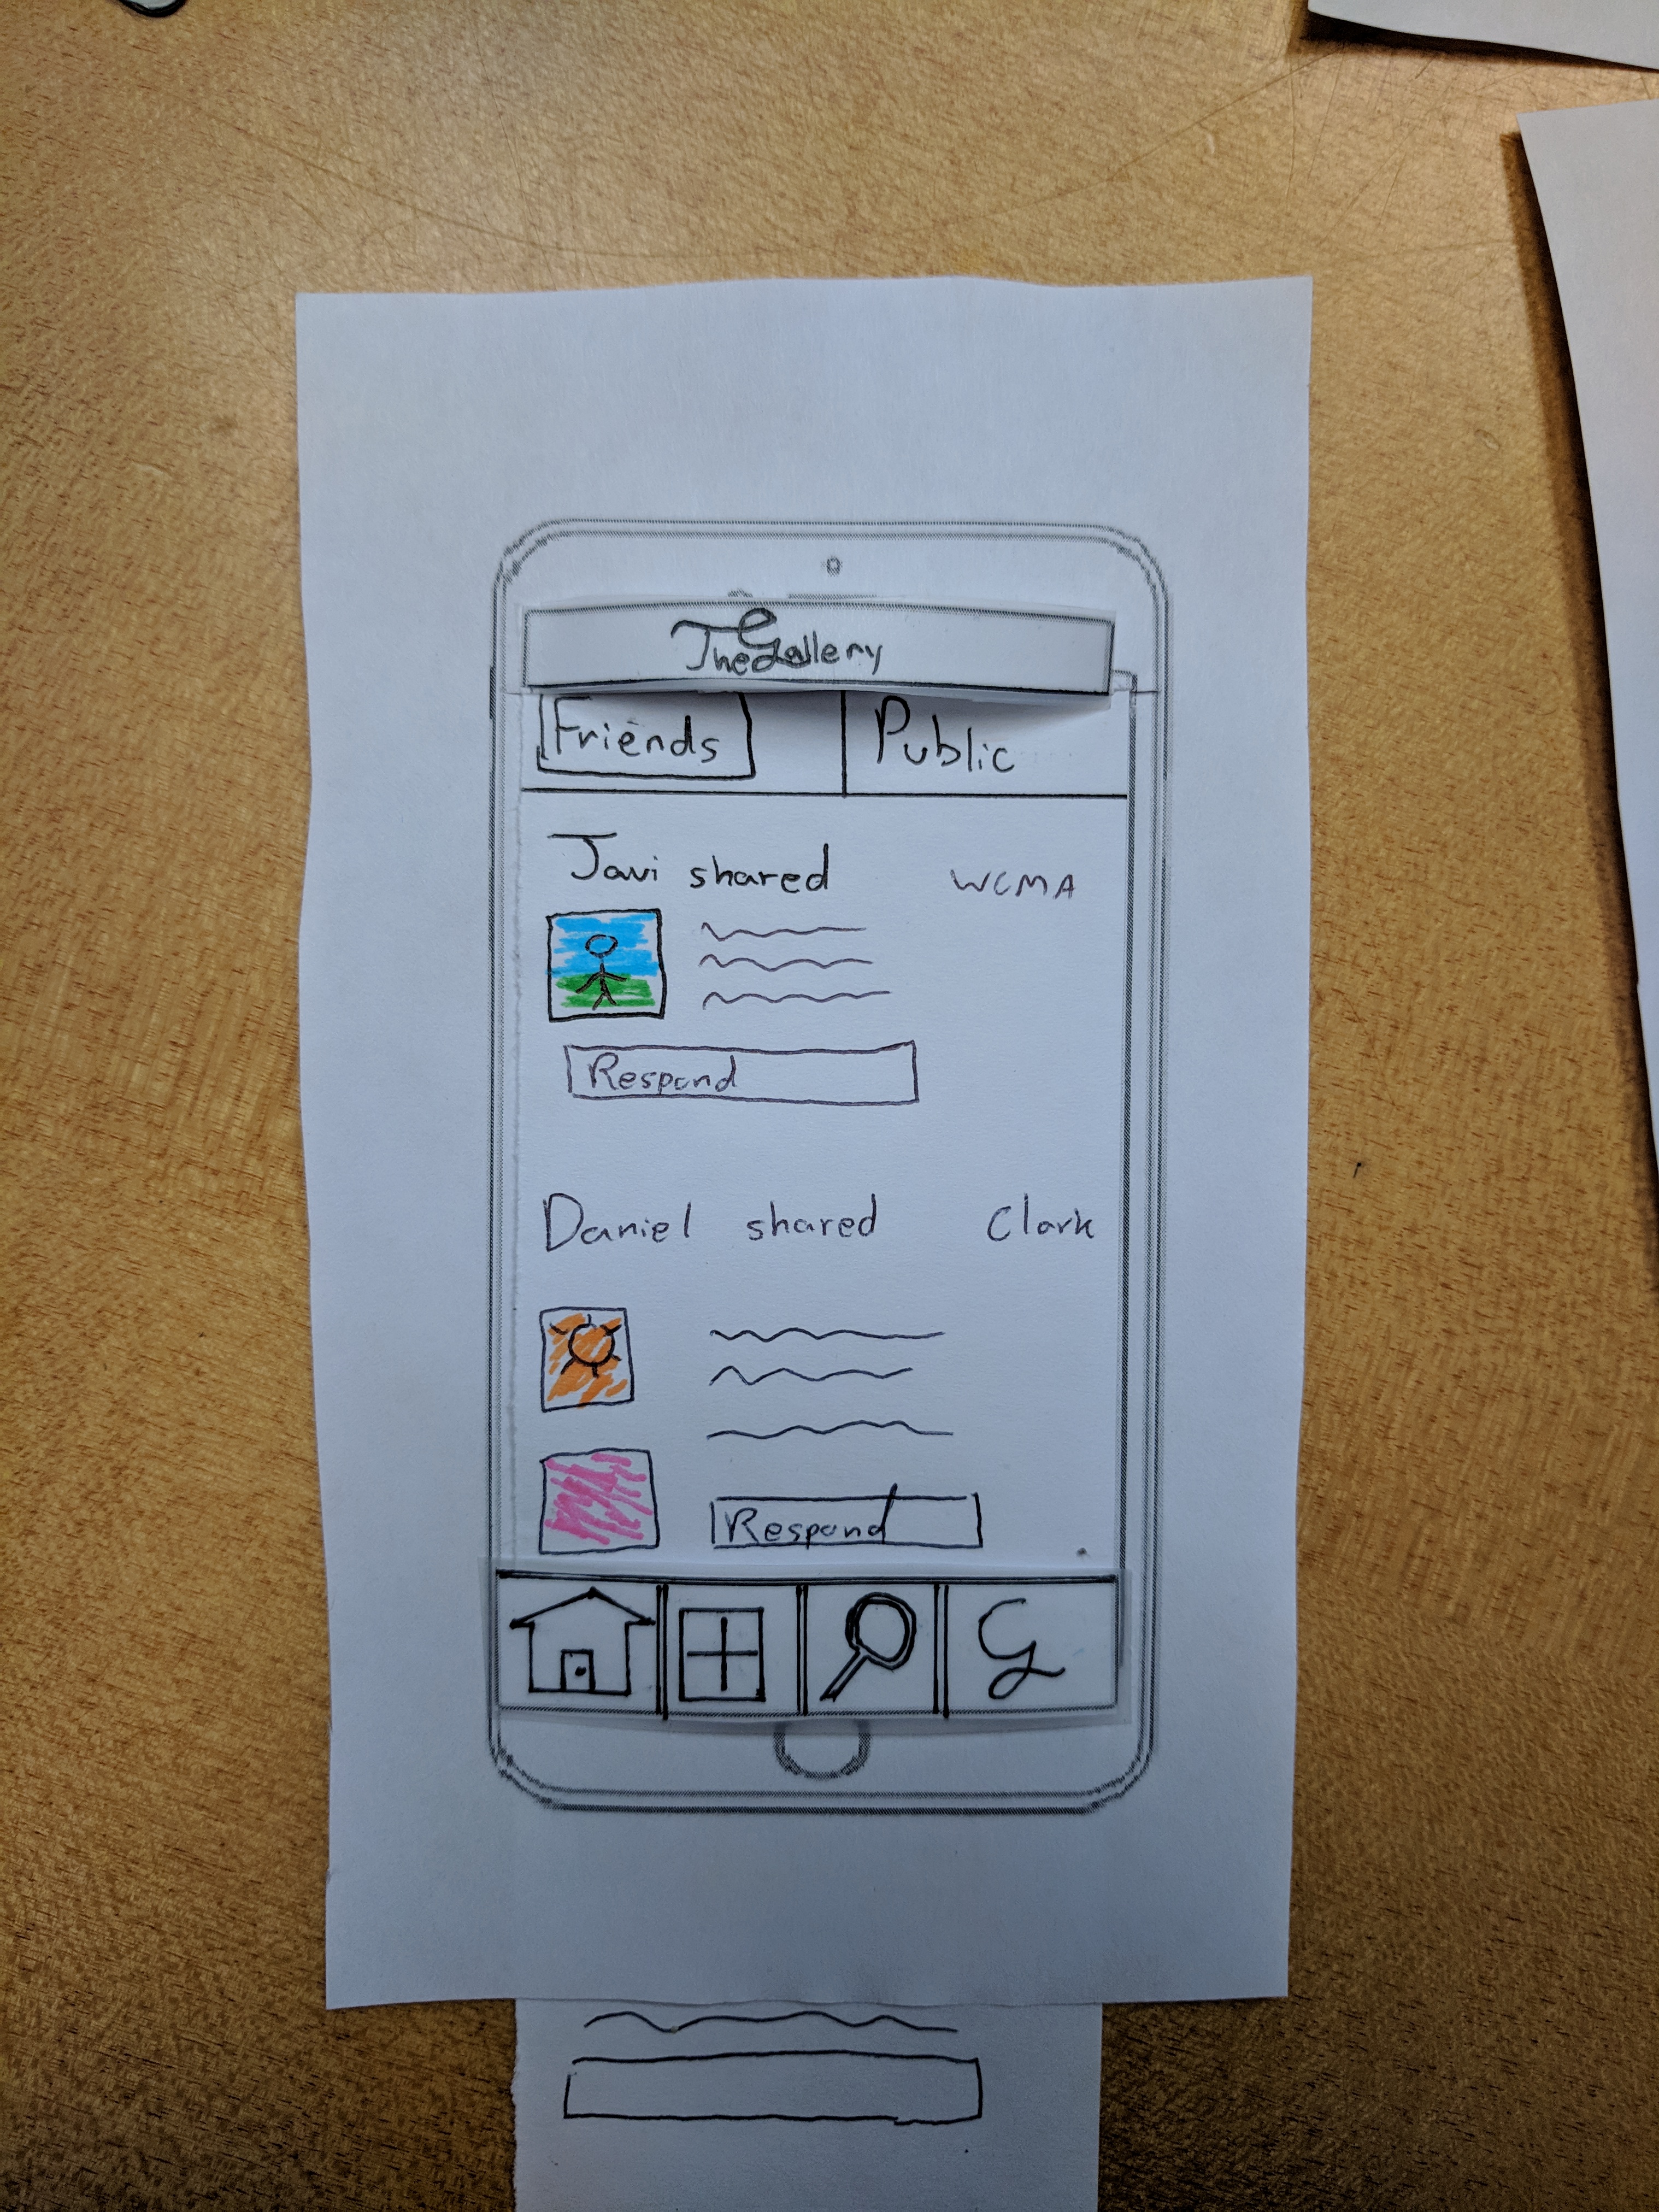 The Gallery
Friends Public
Javi shared WCMA
Respond
Daniel shared Clark
Respond
G